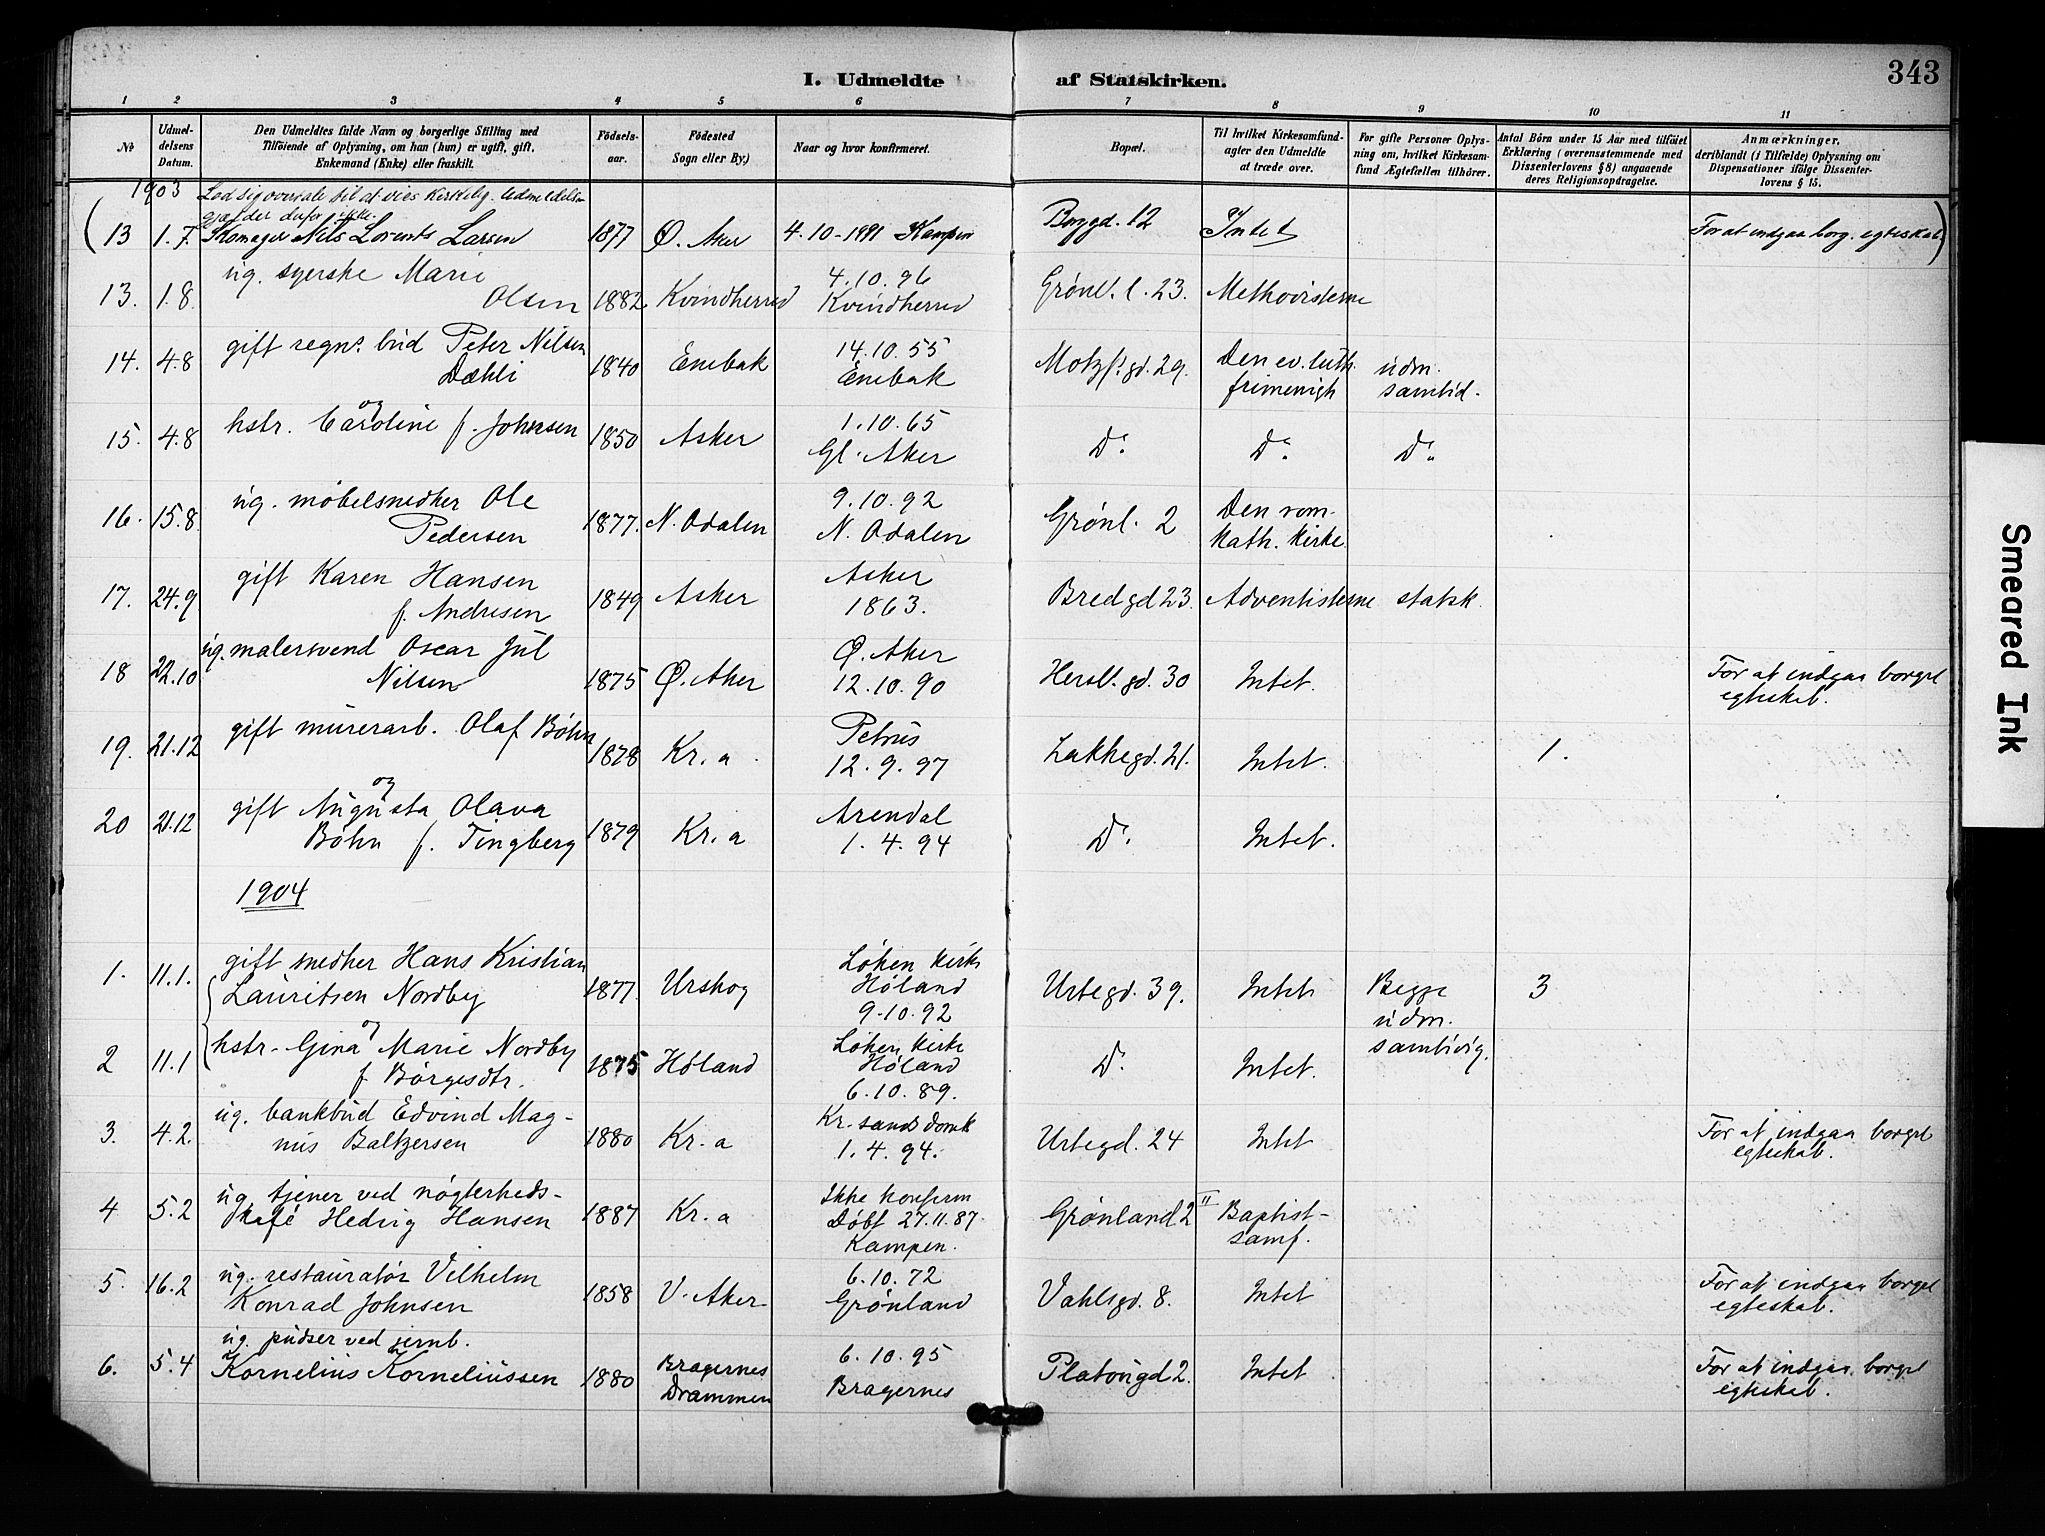 I. Udmeldte af Statskirken.
343
1 2 3 4 5 6 7 8 9 10 11
No
Udmeldelsens Datum.
Den Udmeldtes fulde Navn og borgerlige Stilling med
Tilföiende af Oplysning, om han (hun) er ugift, gift,
Enkemand (Enke) eller fraskilt.
Födsels-
aar.
Födested
Sogn eller By.)
Naar og hvor konfirmeret.
Bopæl.
Til hvilket Kirkesamfund-
agter den Udmeldte
at træde over.
For gifte Personer Oplys-
ning om, hvilket Kirkesam-
fund Ægtefællen tilhörer.
Antal Börn under 15 Aar med tilföiet
Erklæring (overensstemmende med
Dissenterlovens § 8) angaaende
deres Religionsopdragelse.
Anmærkninger,
deriblandt (i Tilfælde) Oplysning om
Dispensationer ifölge Dissenter-
lovens § 15.
1903
Lod sig overtale til at vies kirkelig. Udmeldelsen
gjælder derfor ikke.
(13 1.7. Skomager Nils Lorents Larsen 1877 Ø. Aker 4-10-1891 Kampen Borggd. 12 Intet For at indgaa borg. egteskab)
13. 1.8. ug. syerske Marie
Olsen 1882 Kvindherred 4.10.96
Kvindherred Grønl. l. 23. Methodisterne
14. 4.8 gift regns. bud Peter Nilsen
Dæhli 1840 Enebak 14.10.55
Enebak Motzf. gd. 29. Den ev. luth.
frimenigh udm.
samtid.
og
15. 4.8 hstr. Caroline f. Johnsen 1850 Asker 1.10.65
Gl. Aker Do Do Do
16. 15.8. ug. möbelsnedker Ole
Pedersen 1877. N. Odalen 9.10.92
N. Odalen Grønl. 2 Den rom.
kath. kirke.
17. 24.9 gift Karen Hansen
f. Andresen 1849 Asker Asker
1863. Bredgd 23. Adventisterne statsk.
18 22.10 ug. malersvend Oscar Jul
Nilsen 1875 Ø. Aker Ø. Aker
12.10.90 Hersl. gd. 30 Intet. For at indgaa borgel
egteskab.
19. 21.12 gift murerarb. Olaf Böhn 1878 Kr.a. Petrus
12.9.97 Lakkegd. 21. Intet. 1.
og
20 21.12 gift Augusta Olava
Böhn f. Tingberg 1879 Kr.a Arendal
1.4.94 Do Intet.
1904
1. 11.1. gift snedker Hans Kristian
Lauritsen Nordby 1877. Urskog Löken kirke
Höland
9.10.92 Urtegd. 39. Intet Begge
udm.
samtidig. 3
og
2 11.1 hstr. Gina Marie Nordby
f Börgesdtr. 1875 Höland Löken kirke
Höland
6.10.89. Do Intet.
3. 4.2. ug. bankbud Edvind Mag-
nus Baltzersen 1880 Kr.a Kr.sands domk
1.4.94. Urtegd. 24 Intet For at indgaa borgel
egteskab.
4 5.2 ug. tjener ved nögterheds-
kafé Hedvig Hansen 1887 Kr.a Ikke konferm
Döbt 27.11.87.
Kampen. Grønland 2 II Baptist-
samf.
5. 16.2 ug. restauratör Vilhelm
Konrad Johnsen 1858 V. Aker 6.10.72
Grønland Vahlsgd. 8. Intet For at indgaa borgel
egteskab.
6. 5.4 ug. pudser ved jernb.
Kornelius Korneliussen 1880 Bragernes
Drammen 6.10.95
Bragernes Platougd 2. Intet For at indgaa borgel
egteskab.
Smeared Ink